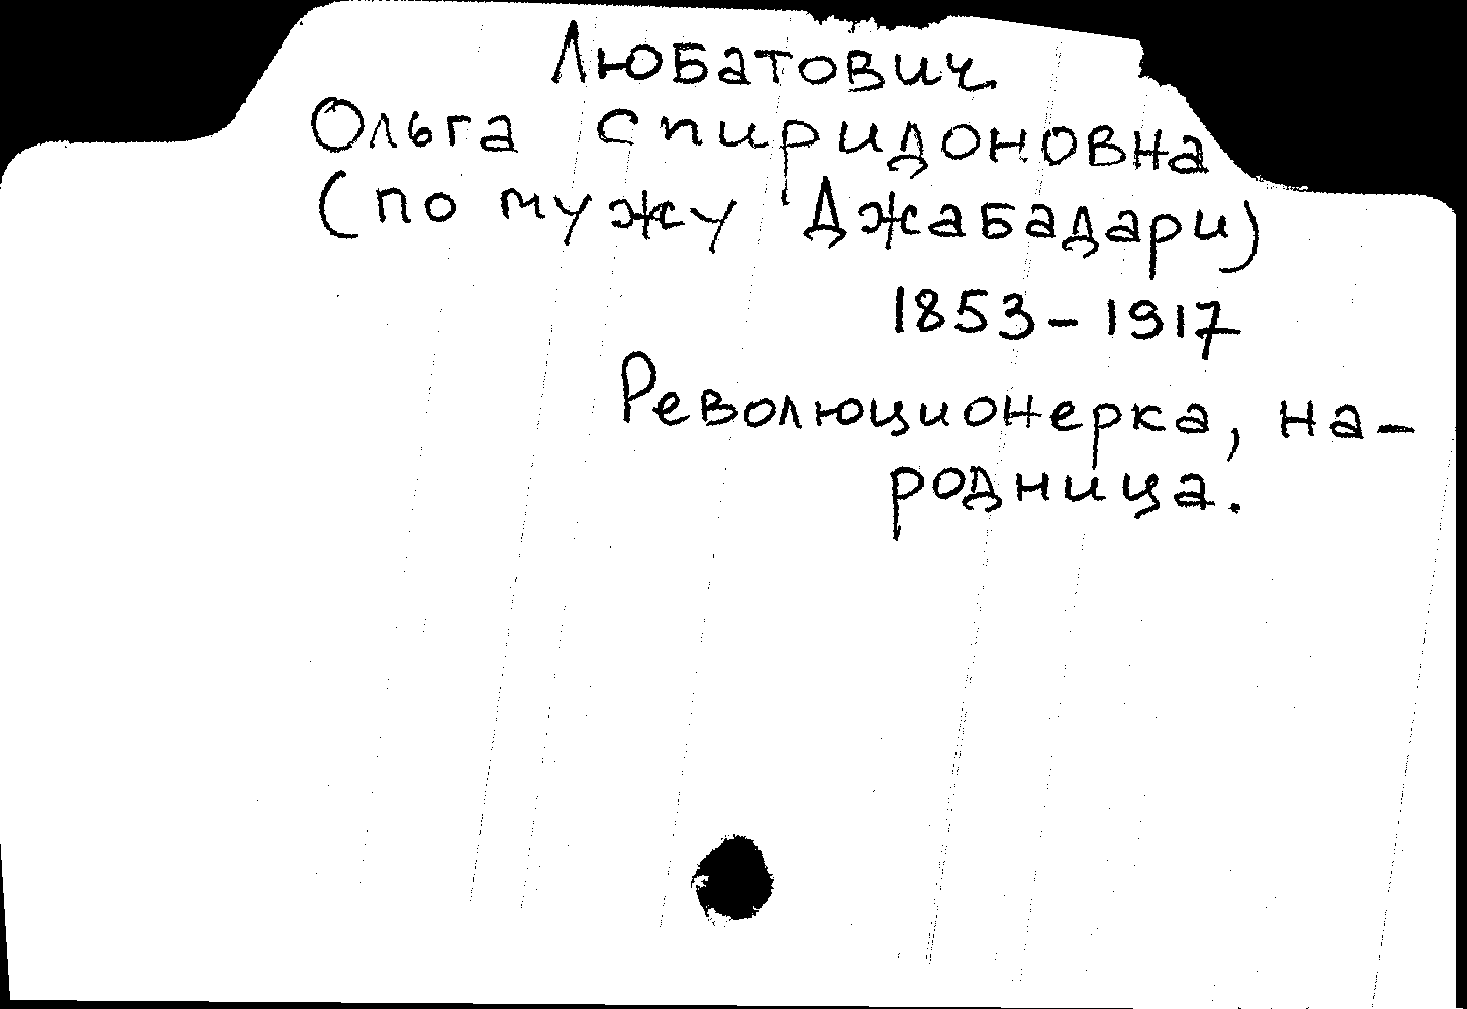 Любатович
Ольга Спиридоновна
(по мужу Джабадари)
1853-1917
Революционерка, на-
родница.